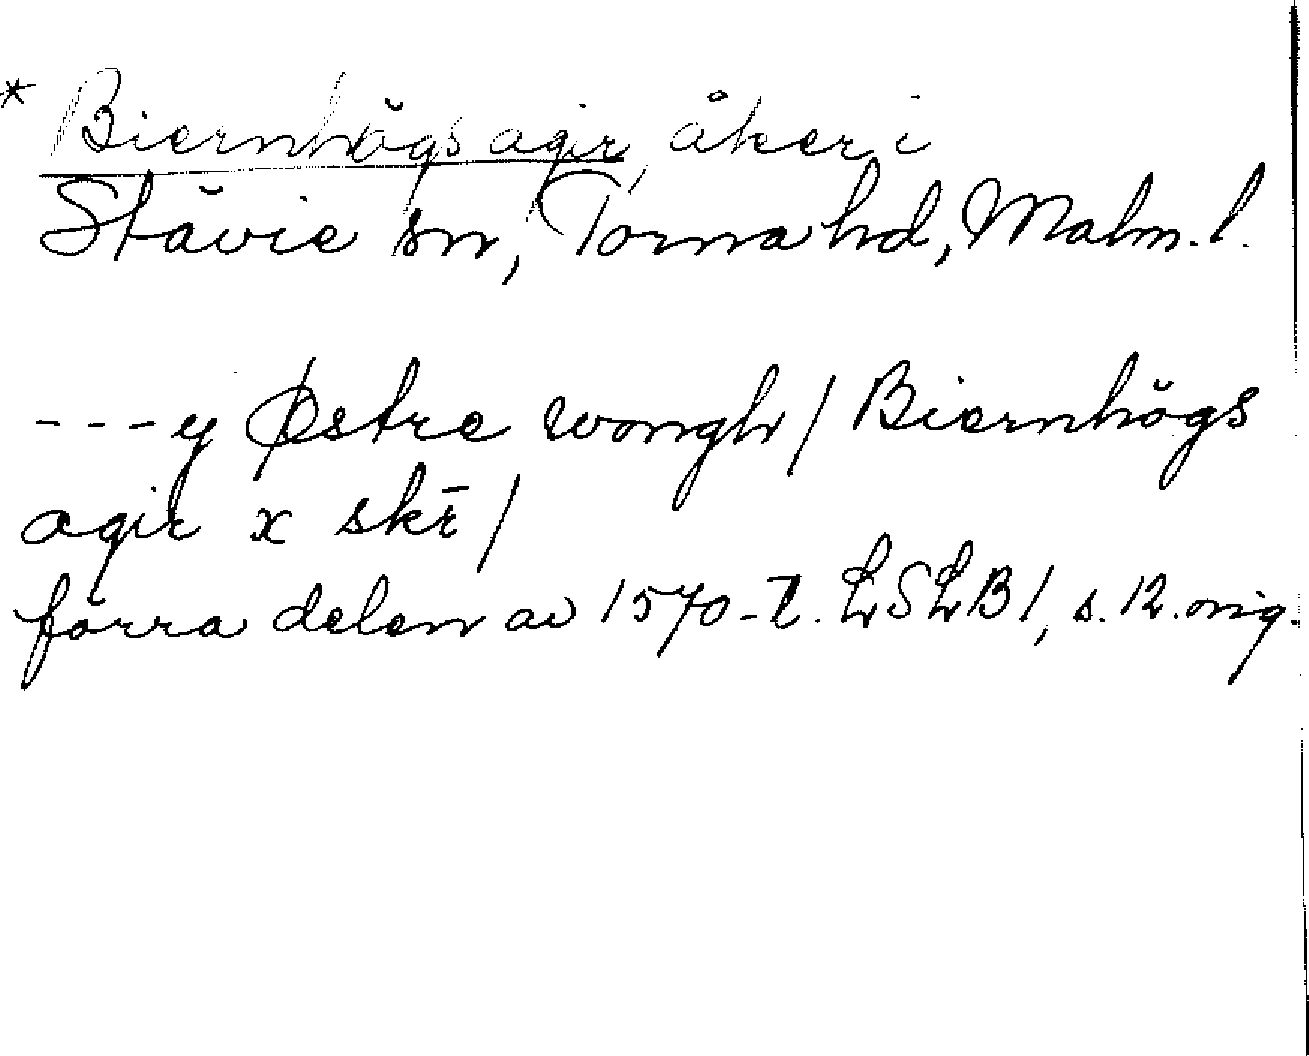 * Biernhögs agir, åker i
Stävie sn, Torna hd, Malm. l.
---y Østre wongh / Biernhögs
agir x skr̄ /
förra delen av 1570-t. LSLB 1, s. 12. orig.